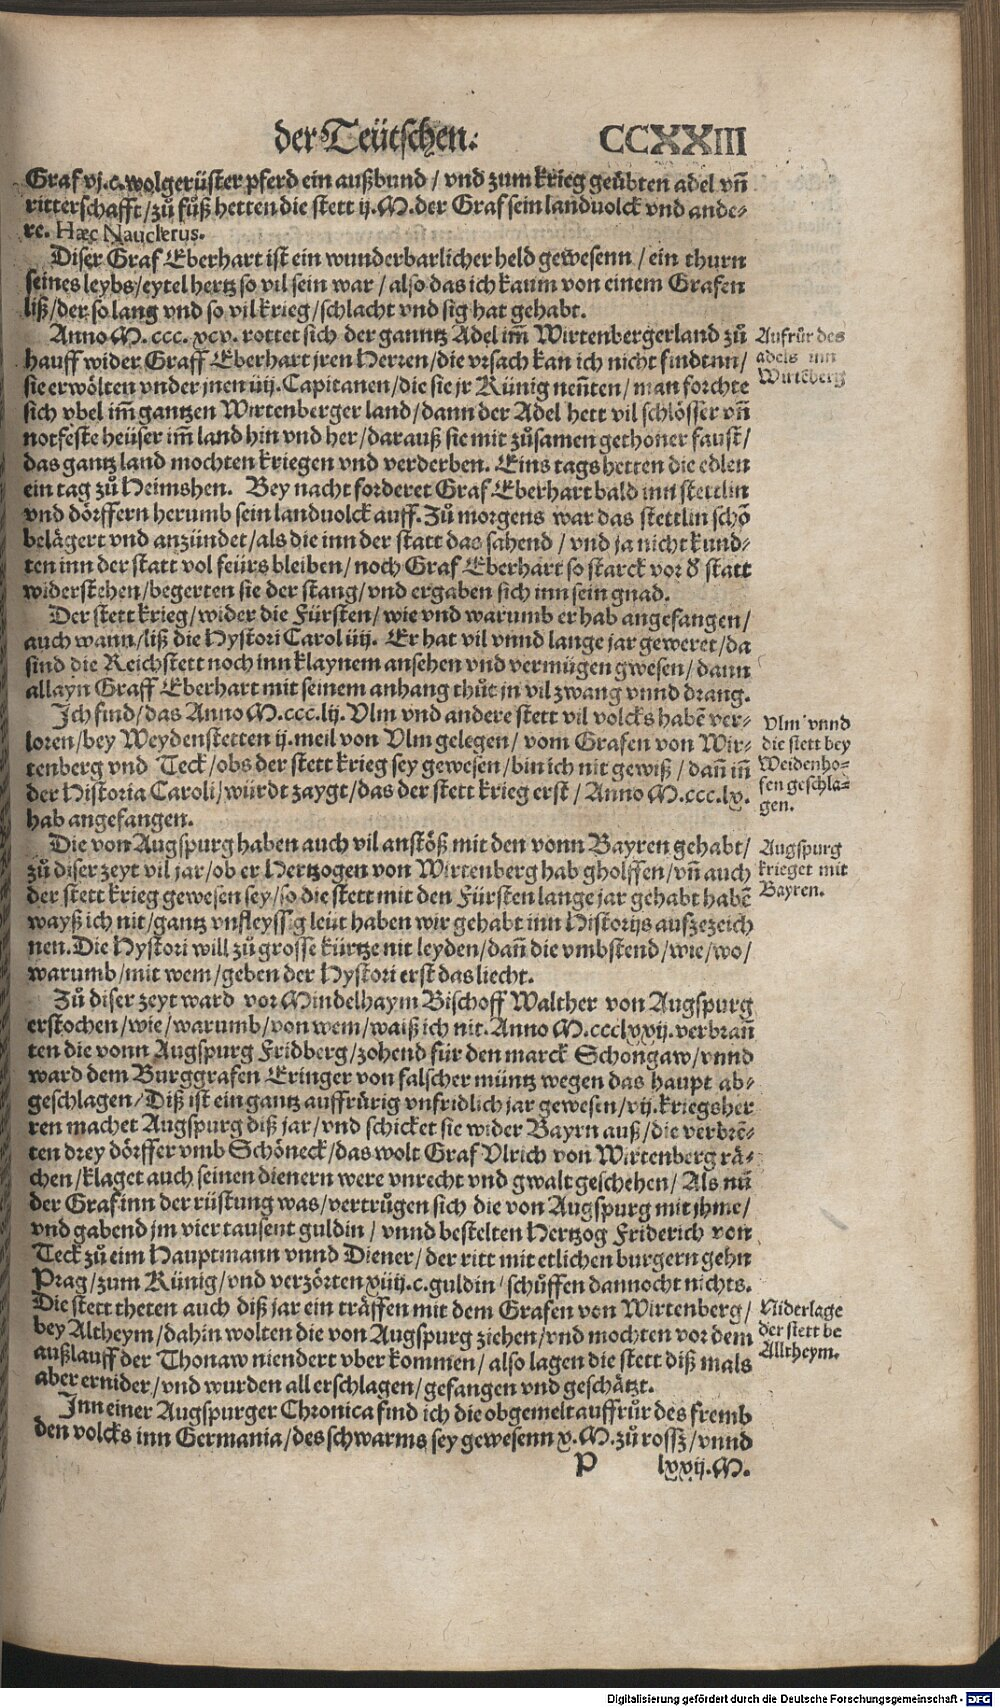 der Teütschen. CCXXIII
Graf vj.c. wolgerüster pferd ein außbund / vnd zum krieg geübten adel vñ
ritterschafft / zů fůß hetten die stett ij.M. der Graf sein landuolck vnd ande-
re. Hæc Nauclerus.
Diser Graf Eberhart ist ein wunderbarlicher held gewesenn / ein thurn
seines leybs / eytel hertz so vil sein war / also das ich kaum von einem Grafen
liß / der so lang vnd so vil krieg / schlacht vnd sig hat gehabt.
Anno M. ccc. xcv. rottet sich der ganntz Adel im̃ Wirtenbergerland zů
hauff wider Graff Eberhart jren Herren / die vrsach kan ich nicht findenn /
sie erwölten vnder jnen iiij. Capitanen / die sie jr Künig neñten / man forchte
sich vbel im̃ gantzen Wirtenberger land / dann der Adel hett vil schlösser vñ
notfeste heüser im̃ land hin vnd her / darauß sie mit zůsamen gethoner faust /
das gantz land mochten kriegen vnd verderben. Eins tags hetten die edlen
ein tag zů Heimshen. Bey nacht forderet Graf Eberhart bald inn stettlin
vnd dörffern herumb sein landuolck auff. Zů morgens war das stettlin schõ
belägert vnd anzündet / als die inn der statt das sahend / vnd ja nicht kund-
ten inn der statt vol feürs bleiben / noch Graf Eberhart so starck vor d̃ statt
widerstehen / begerten sie der stang / vnd ergaben sich inn sein gnad.
Aufrůr des
adels inn
Wirtēberg
Der stett krieg / wider die Fürsten / wie vnd warumb er hab angefangen /
auch wann / liß die Hystori Carol iiij. Er hat vil vnnd lange jar geweret / da
sind die Reichstett noch inn klaynem ansehen vnd vermügen gwesen / dann
allayn Graff Eberhart mit seinem anhang thůt jn vil zwang vnnd drang.
Ich find / das Anno M.ccc.lij. Vlm vnd andere stett vil volcks habẽ ver-
loren / bey Weydenstetten ij. meil von Vlm gelegen / vom Grafen von Wir-
tenberg vnd Teck / obs der stett krieg sey gewesen / bin ich nit gewiß / dañ iñ
der Historia Caroli / würdt zaygt / das der stett krieg erst / Anno M.ccc.lx.
hab angefangen.
Vlm vnnd
die stett bey
Weidenho-
fen geschla-
gen.
Die von Augspurg haben auch vil anstöß mit den vonn Bayren gehabt /
zů diser zeyt vil jar / ob er Hertzogen von Wirtenberg hab gholffen / vñ auch
der stett krieg gewesen sey / so die stett mit den Fürsten lange jar gehabt habẽ
wayß ich nit / gantz vnfleyssig leüt haben wir gehabt inn Historijs aufzezeich
nen. Die Hystori will zů grosse kürtze nit leyden / dañ die vmbstend / wie / wo /
warumb / mit wem / geben der Hystori erst das liecht.
Augspurg
krieget mit
Bayren.
Zů diser zeyt ward vor Mindelhaym Bischoff Walther von Augspurg
erstochen / wie / warumb / von wem / waiß ich nit. Anno M.ccclxxij. verbrañ
ten die vonn Augspurg Fridberg / zohend für den marck Schongaw / vnnd
ward dem Burggrafen Eringer von falscher müntz wegen das haupt ab-
geschlagen / Diß ist ein gantz auffrürig vnfridlich jar gewesen / vij. kriegsher
ren machet Augspurg diß jar / vnd schicket sie wider Bayrn auß / die verbrẽ-
ten drey dörffer vmb Schöneck / das wolt Graf Vlrich von Wirtenberg rä-
chen / klaget auch seinen dienern were vnrecht vnd gwalt geschehen / Als nũ
der Graf inn der rüstung was / vertrůgen sich die von Augspurg mit jhme /
vnd gabend jm vier tausent guldin / vnnd bestelten Hertzog Friderich von
Teck zů eim Hauptmann vnnd Diener / der ritt mit etlichen burgern gehn
Prag / zum Künig / vnd verzörten xiiij.c. guldin / schůffen dannocht nichts.
Die stett theten auch diß jar ein träffen mit dem Grafen von Wirtenberg /
bey Altheym / dahin wolten die von Augspurg ziehen / vnd mochten vor dem
außlauff der Thonaw niendert vber kommen / also lagen die stett diß mals
aber ernider / vnd wurden all erschlagen / gefangen vnd geschätzt.
Niderlage
der stett be
Alltheym.
Inn einer Augspurger Chronica find ich die obgemelt auffrůr des fremb
den volcks inn Germania / des schwarms sey gewesenn x. M. zů rossz / vnnd
P lxxij. M.
Digitalisierung gefördert durch die Deutsche Forschungsgemeinschaft - DFG